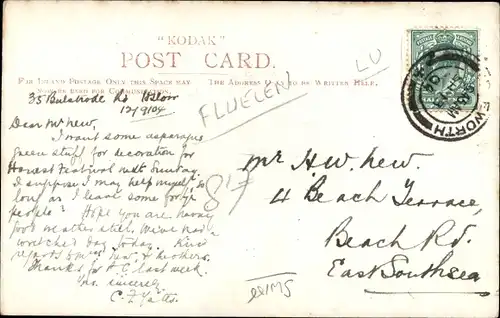 "KODAK"
POST CARD.
FOR INLAND POSTAGE ONLY THIS SPACE MAY
BE USED FOR COMMUNICATION.
THE ADDRESS ONLY TO BE WRITTEN HERE.
35 Bulstrode Rd Hslow
12/9/04
Dear Mr New,
I want some asparagus
green stuff for decoration for
Harvest Festival next Sunday.
I suppose I may help myself so
long as I leave some for yr
people? Hope you are having
good weather still. We've had
wretched day today. Kind
regards to Mrs New & brothers.
Thanks for P.C. last week.
Yrs. sincerely
C. F. Yatts.
FLUELEN
LU
87
SWISS
WORTH
Mr H.W. New.
4 Beach Terrace,
Beach Rd.
East Southsea